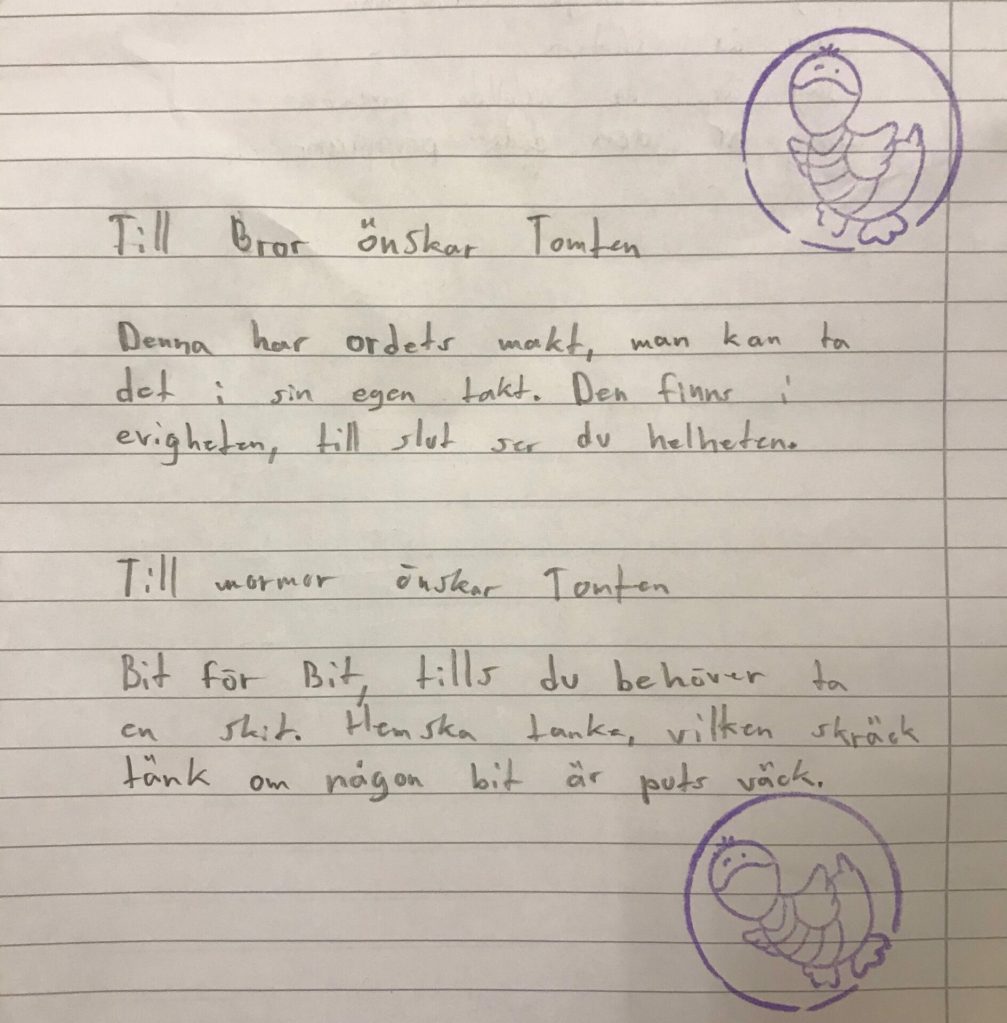 Till Bror önskar Tomten
Denna har ordets makt, man kan ta
det i sin egen takt. Den finns i
evigheten, till slut ser du helheten.
Till mormor önskar Tomten
Bit för Bit, tills du behöver ta
en skit. Hemska tanke, vilken skräck
tänk om någon bit är puts väck.